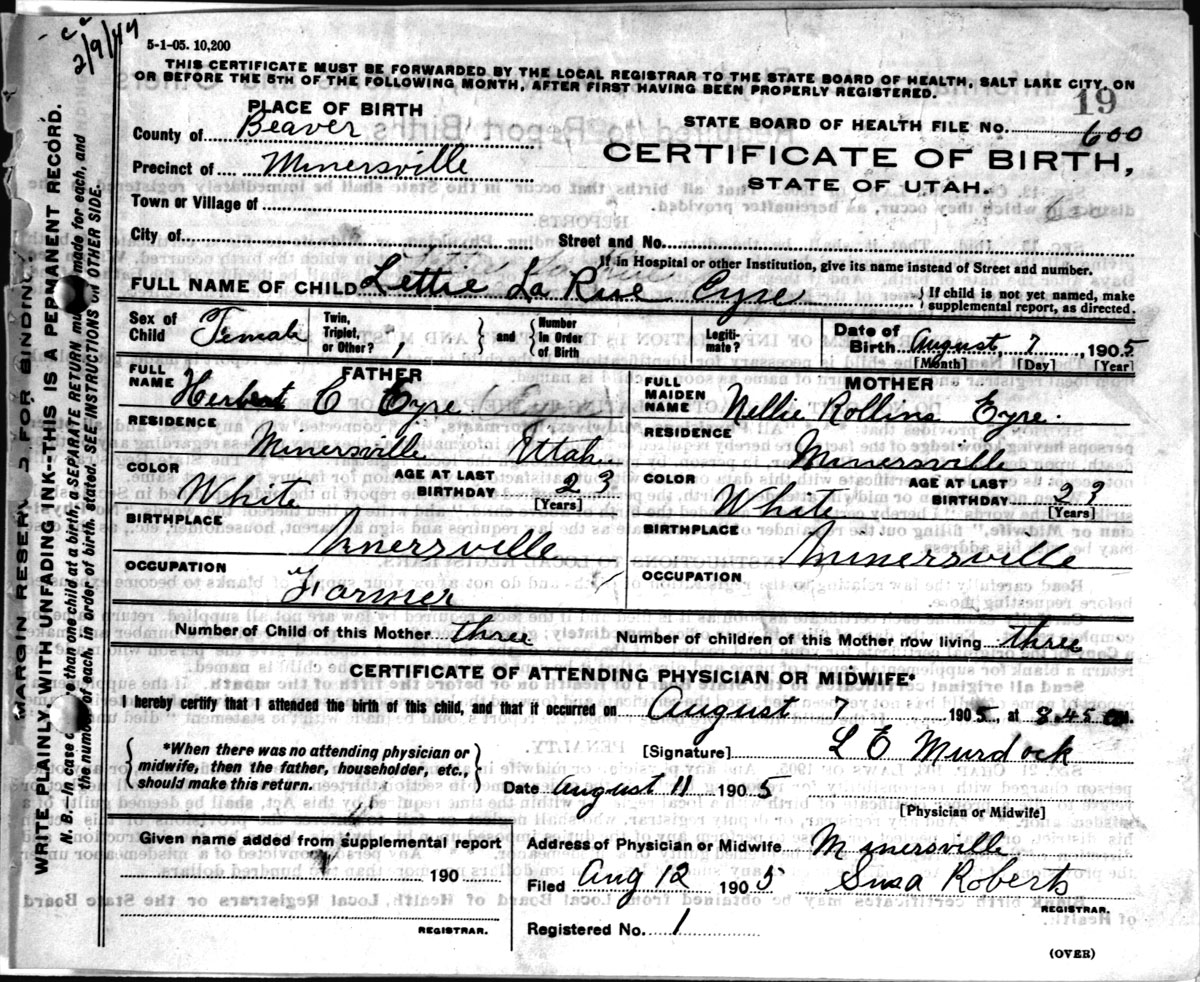 c c
2/9/44
5-1-05. 10,200
THIS CERTIFICATE MUST BE FORWARDED BY THE LOCAL REGISTRAR TO THE STATE BOARD OF HEALTH, SALT LAKE CITY, ON
OR BEFORE THE 5TH OF THE FOLLOWING MONTH, AFTER FIRST HAVING BEEN PROPERLY REGISTERED.
19
PLACE OF BIRTH
County of Beaver
STATE BOARD OF HEALTH FILE NO. 600
Precinct of Minersville
CERTIFICATE OF BIRTH,
STATE OF UTAH.
Town or Village of
City of
Street and No.
If in Hospital or other Institution, give its name instead of Street and number.
FULL NAME OF CHILD Lettie La Rue Eyre
{ If child is not yet named, make supplemental report, as directed.
Sex of Child Female
Twin, Triplet, or Other? 1 } and { Number in Order of Birth
Legiti-mate?
Date of Birth August 7, 1905
[Month] [Day] [Year]
FATHER
FULL NAME Herbert C Eyre
RESIDENCE Minersville Utah
COLOR White
AGE AT LAST BIRTHDAY 23
[Years]
BIRTHPLACE Minersville
OCCUPATION Farmer
MOTHER
FULL MAIDEN NAME Nellie Rollins Eyre.
RESIDENCE Minersville
COLOR White
AGE AT LAST BIRTHDAY 23
[Years]
BIRTHPLACE Minersville
OCCUPATION
Number of Child of this Mother three Number of children of this Mother now living three
CERTIFICATE OF ATTENDING PHYSICIAN OR MIDWIFE*
I hereby certify that I attended the birth of this child, and that it occurred on August 7 1905, at 8.45 a M.
{ *When there was no attending physician or
midwife, then the father, householder, etc.,
should make this return. }
[Signature] L E Murdock
Date august 11 1905
[Physician or Midwife]
Given name added from supplemental report
190
REGISTRAR.
Address of Physician or Midwife Minersville
Filed Aug 12 1905 Susa Roberts
REGISTRAR.
Registered No. 1
(OVER)
MARGIN RESERVED FOR BINDING.
WRITE PLAINLY, WITH UNFADING INK--THIS IS A PERMANENT RECORD.
N. B.--In case of more than one child at a birth, a SEPARATE RETURN must be made for each, and
the number of each, in order of birth, stated. SEE INSTRUCTIONS ON OTHER SIDE.